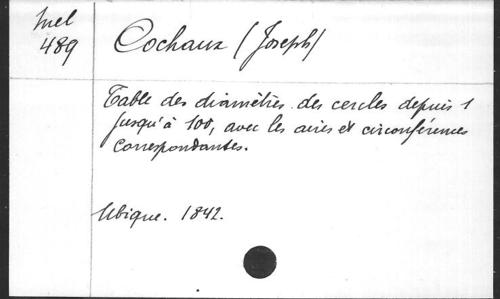 Mel
489
Cochaux (Joseph)
Table des diamètres des cercles depuis 1
jusqu'à 100, avec les aires et circonférences
correspondantes.
Ubique. 1842.